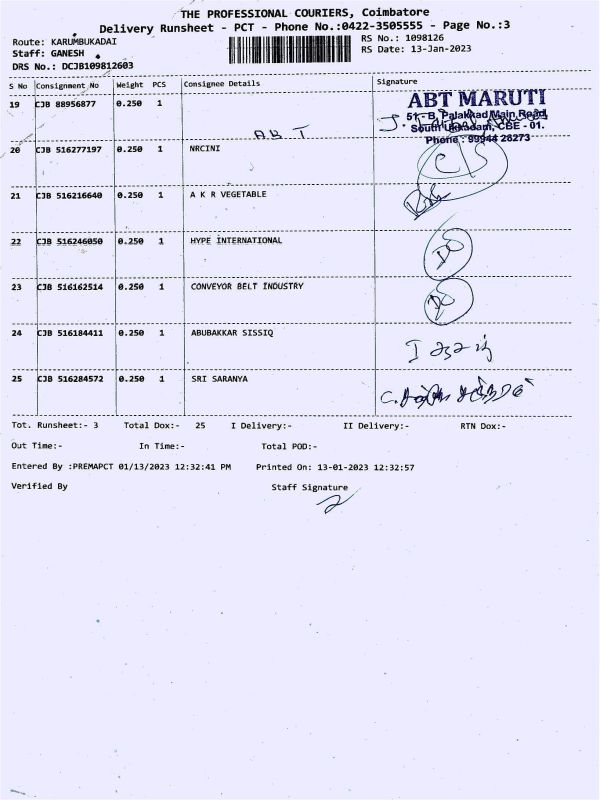 THE PROFESSIONAL COURIERS, Coimbatore
Delivery Runsheet - PCT - Phone No.:0422-3505555 - Page No.:3
Route: KARUMBUKADAI
RS No.: 1098126
Staff: GANESH
RS Date: 13-Jan-2023
DRS No.: DCJB109812603
S No Consignment No Weight PCS Consignee Details Signature
19 CJB 88956877 0.250 1
ABT
ABT MARUTI
51 - B, Palakkad Main Road
South Ukkadam, CBE - 01.
Phone : 99944 26273
20 CJB 516277197 0.250 1 NRCINI
21 CJB 516216640 0.250 1 A K R VEGETABLE
22 CJB 516246050 0.250 1 HYPE INTERNATIONAL
23 CJB 516162514 0.250 1 CONVEYOR BELT INDUSTRY
24 CJB 516184411 0.250 1 ABUBAKKAR SISSIQ
25 CJB 516284572 0.250 1 SRI SARANYA
Tot. Runsheet:- 3 Total Dox:- 25 I Delivery:- II Delivery:- RTN Dox:-
Out Time:- In Time:- Total POD:-
Entered By :PREMAPCT 01/13/2023 12:32:41 PM Printed On: 13-01-2023 12:32:57
Verified By Staff Signature